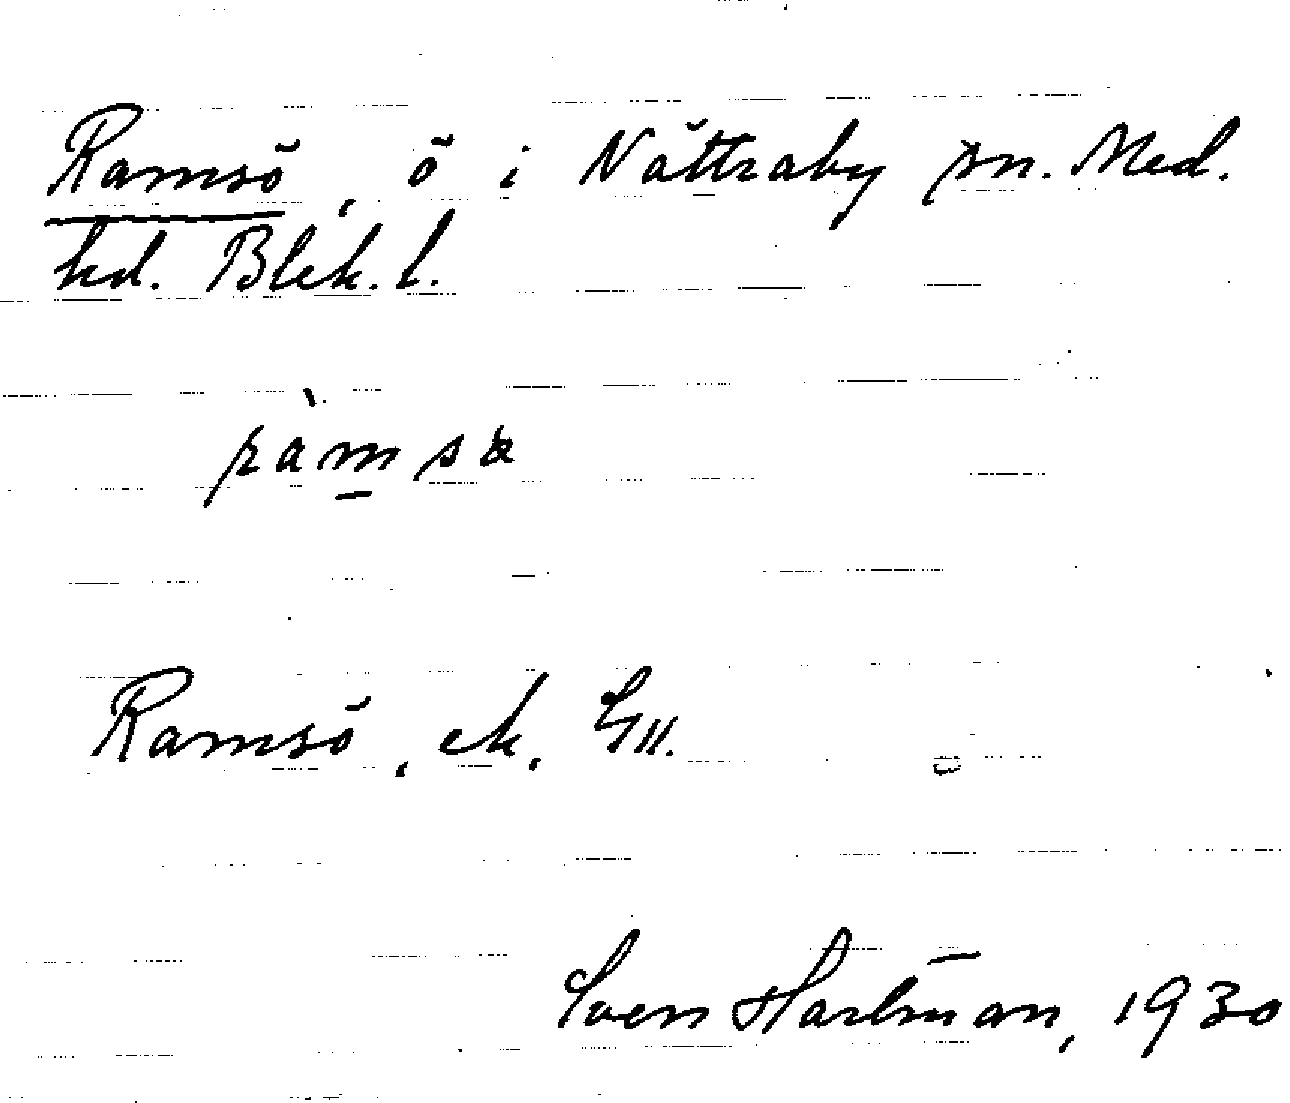 Ramsö, ö i Nättraby sn. Med.
hd. Blek. l.
Ramsö, ek,
Sven Hartman, 1930